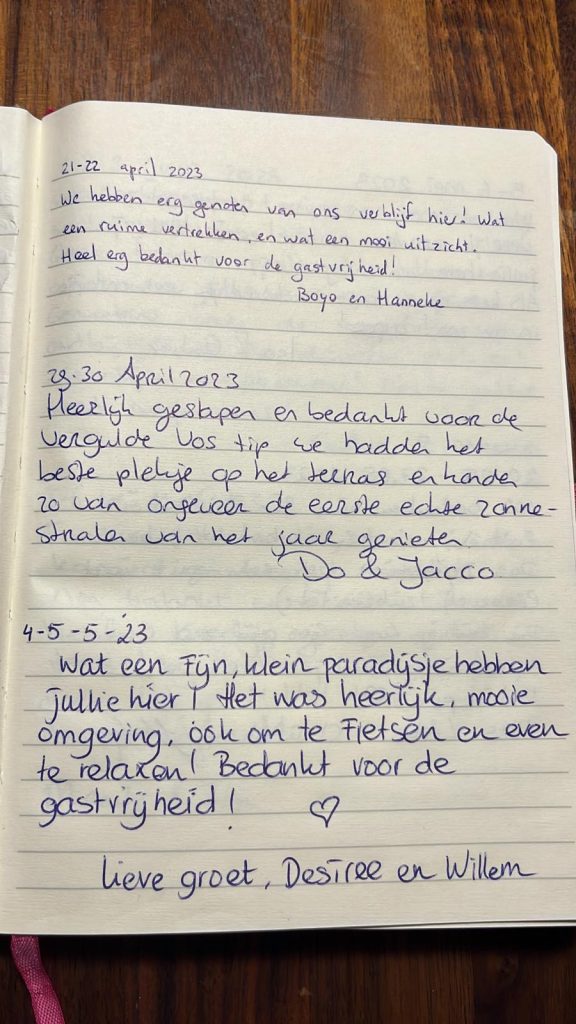 21-22 april 2023
We hebben erg genoten van ons verblijf hier! Wat
een ruime vertrekken, en wat een mooi uitzicht.
Heel erg bedankt voor de gastvrijheid!
Boyo en Hanneke
29-30 April 2023
Heerlijk geslapen en bedankt voor de
Vergulde Vos tip we hadden het
beste plekje op het terras en konden
zo van ongeveer de eerste echte zonne-
stralen van het jaar genieten
Do & Jacco
4-5 -5-'23
Wat een fijn, klein paradijsje hebben
jullie hier! Het was heerlijk, mooie
omgeving, óók om te fietsen en even
te relaxen! Bedankt voor de
gastvrijheid! ♡
Lieve groet, Desiree en Willem